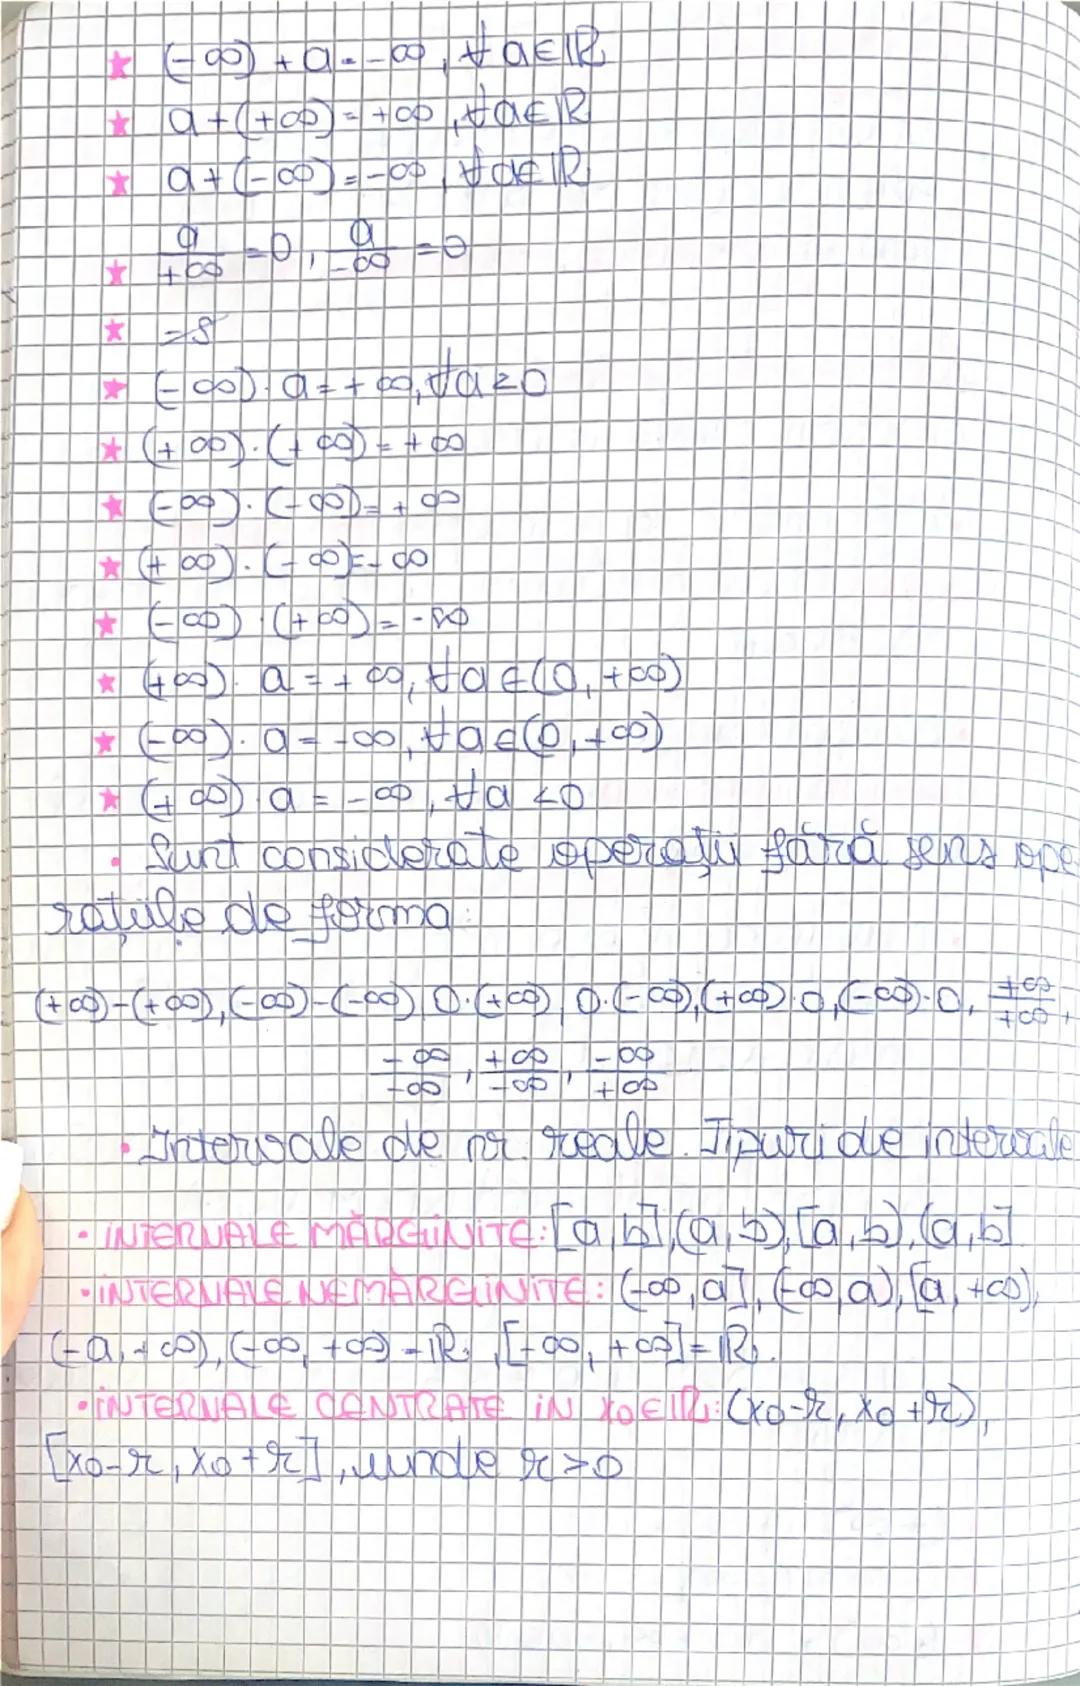 ★ (-∞) + a = -∞, ∀ a ∈ ℝ
★ a + (+∞) = +∞, ∀a ∈ ℝ
★ a + (-∞) = -∞, ∀ a ∈ ℝ
★ a/+∞ = 0, a/-∞ = 0
★ =
★ (-∞) · a = +∞, ∀a < 0
★ (+∞) · (+∞) = +∞
★ (-∞) · (-∞) = +∞
★ (+∞) · (-∞) = -∞
★ (-∞) · (+∞) = -∞
★ (+∞) · a = +∞, ∀a ∈ (0, +∞)
★ (-∞) · a = -∞, ∀a ∈ (0, +∞)
★ (+∞) · a = -∞, ∀a < 0
• Sunt considerate operații fără sens ope
rațiile de forma:
(+∞)-(+∞), (-∞)-(-∞), 0·(+∞), 0·(-∞), (+∞)·0, (-∞)·0, +∞/+∞,
-∞/-∞, +∞/-∞, -∞/+∞
• Intervale de nr. reale. Tipuri de intervale
• INTERVALE MĂRGINITE: [a,b], (a,b), [a,b), (a,b]
• INTERVALE NEMĂRGINITE: (-∞,a], (-∞,a), [a,+∞),
(-a,+∞), (-∞,+∞) = ℝ, [-∞,+∞] = ℝ.
• INTERVALE CENTRATE IN x0 ∈ ℝ: (x0-r, x0+r),
[x0-r, x0+r], unde r>0